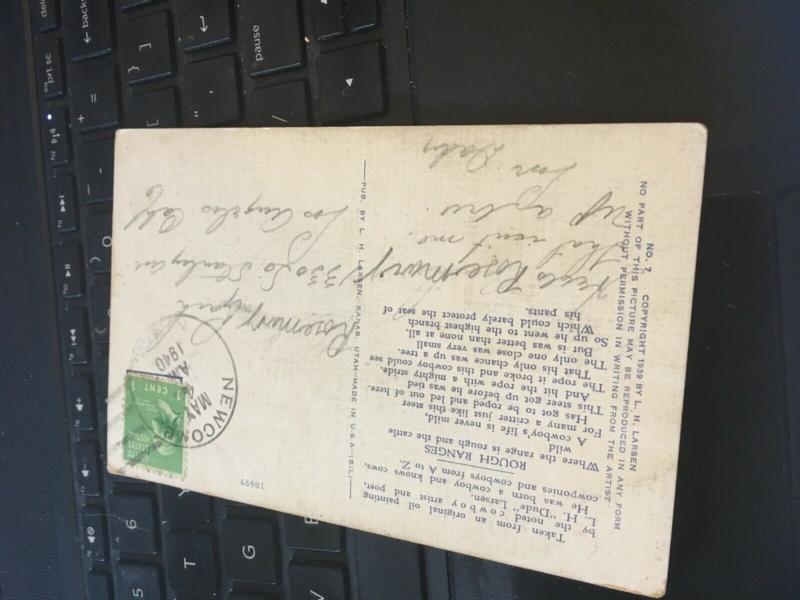 Taken from an original oil painting
by the noted cowboy artist and poet,
L. H. "Dude" Larsen.
He was born a cowboy and knows cows,
cowponies and cowboys from A to Z.
ROUGH RANGES
Where the range is rough and the cattle
wild
A cowboy's life is never mild,
For many a critter just like this steer
Has got to be roped and led out of here.
This steer got up before he was tied
And hit the rope with a mighty stride,
The rope it broke and this cowboy could see
That his only chance was up a tree.
The only one close was very small
But it was better than none at all.
So up he went to the highest branch
Which could barely protect the seat of
his pants.
NO. 7. COPYRIGHT 1939 BY L. H. LARSEN
NO PART OF THIS PICTURE MAY BE REPRODUCED IN ANY FORM
WITHOUT PERMISSION IN WRITING FROM THE ARTIST
PUB. BY L. H. LARSEN, KANAB, UTAH—MADE IN U.S.A.
10695
Rosemary
that isn't me
Dady
NEWCOMB
MAY
A.M.
1940
UNITED STATES
POSTAGE
1 CENT 1
Rosemary
330 So Stanley av
Los Angeles Calf
delete
backspace
prt sc
pause
+
=
}
]
{
[
"
'
:
;
5
T
G
B